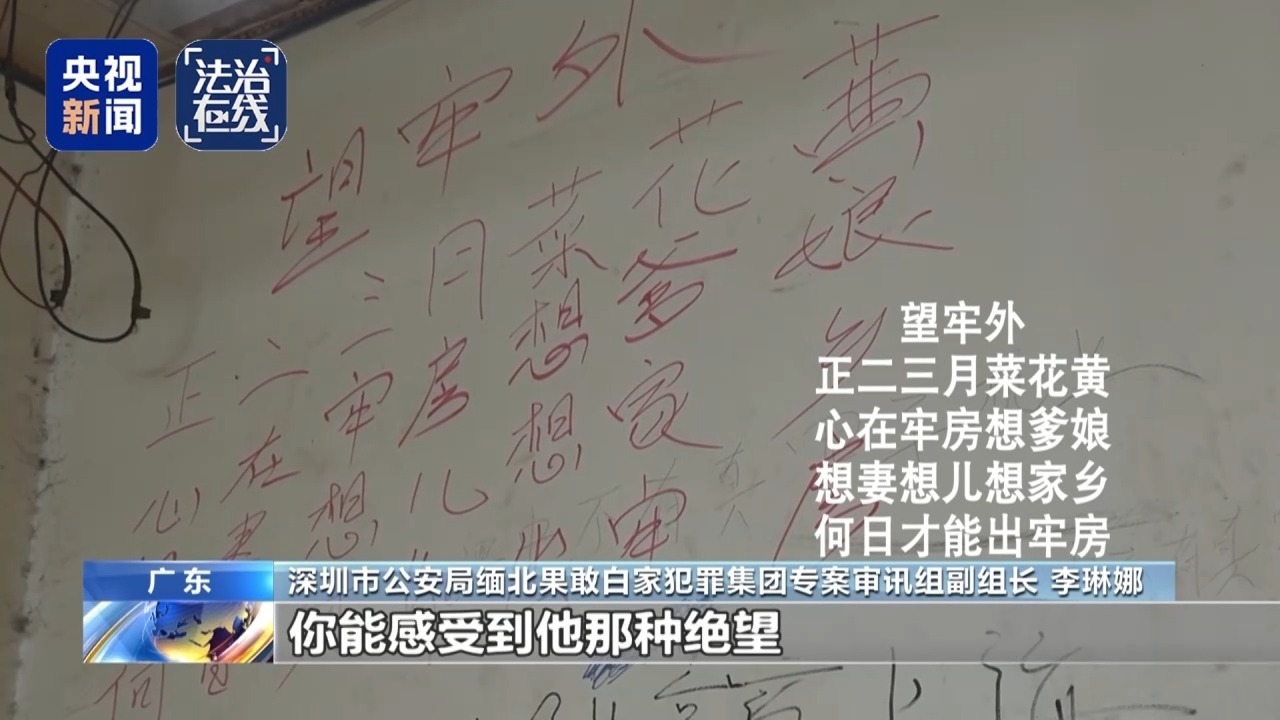 央视新闻
法治在线
望牢外
正二三月菜花黄
心在牢房想爹娘
想妻想儿想家
何
望牢外
正二三月菜花黄
心在牢房想爹娘
想妻想儿想家乡
何日才能出牢房
广东
深圳市公安局缅北果敢白家犯罪集团专案审讯组副组长 李琳娜
你能感受到他那种绝望